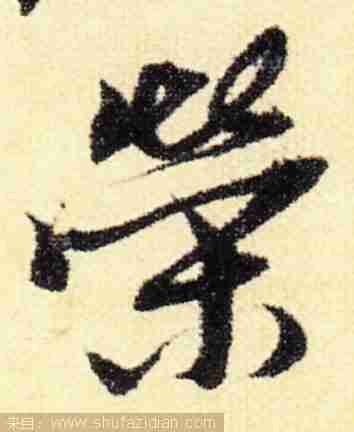 榮
来自：www.shufazidian.com